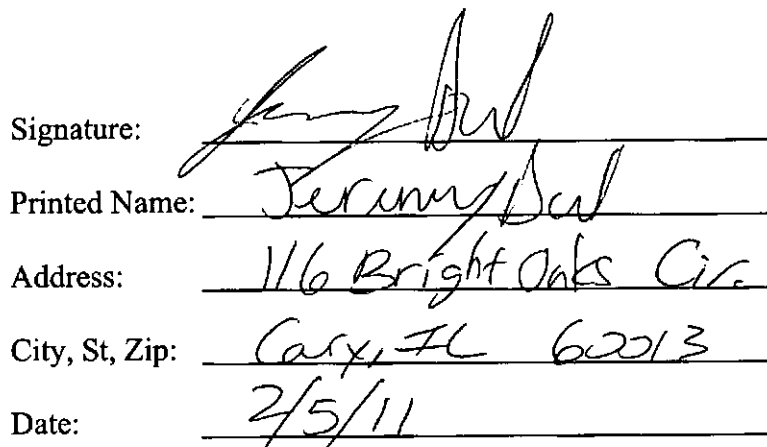 Signature:
Printed Name: Jeremy
Address: 116 Bright Oaks Cir.
City, St, Zip: Cary, IL 60013
Date: 2/5/11